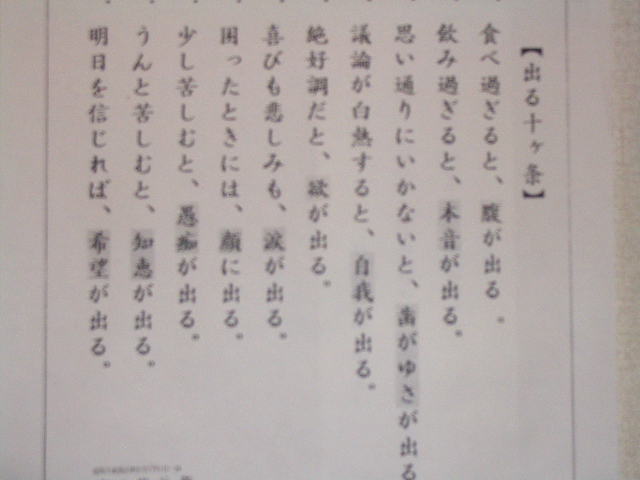 【出る十ヶ条】
・食べ過ぎると、腹が出る。
・飲み過ぎると、本音が出る。
・思い通りにいかないと、歯がゆさが出る
・議論が白熱すると、自我が出る。
・絶好調だと、欲が出る。
・喜びも悲しみも、涙が出る。
・困ったときには、顔に出る。
・少し苦しむと、愚痴が出る。
・うんと苦しむと、知恵が出る。
・明日を信じれば、希望が出る。